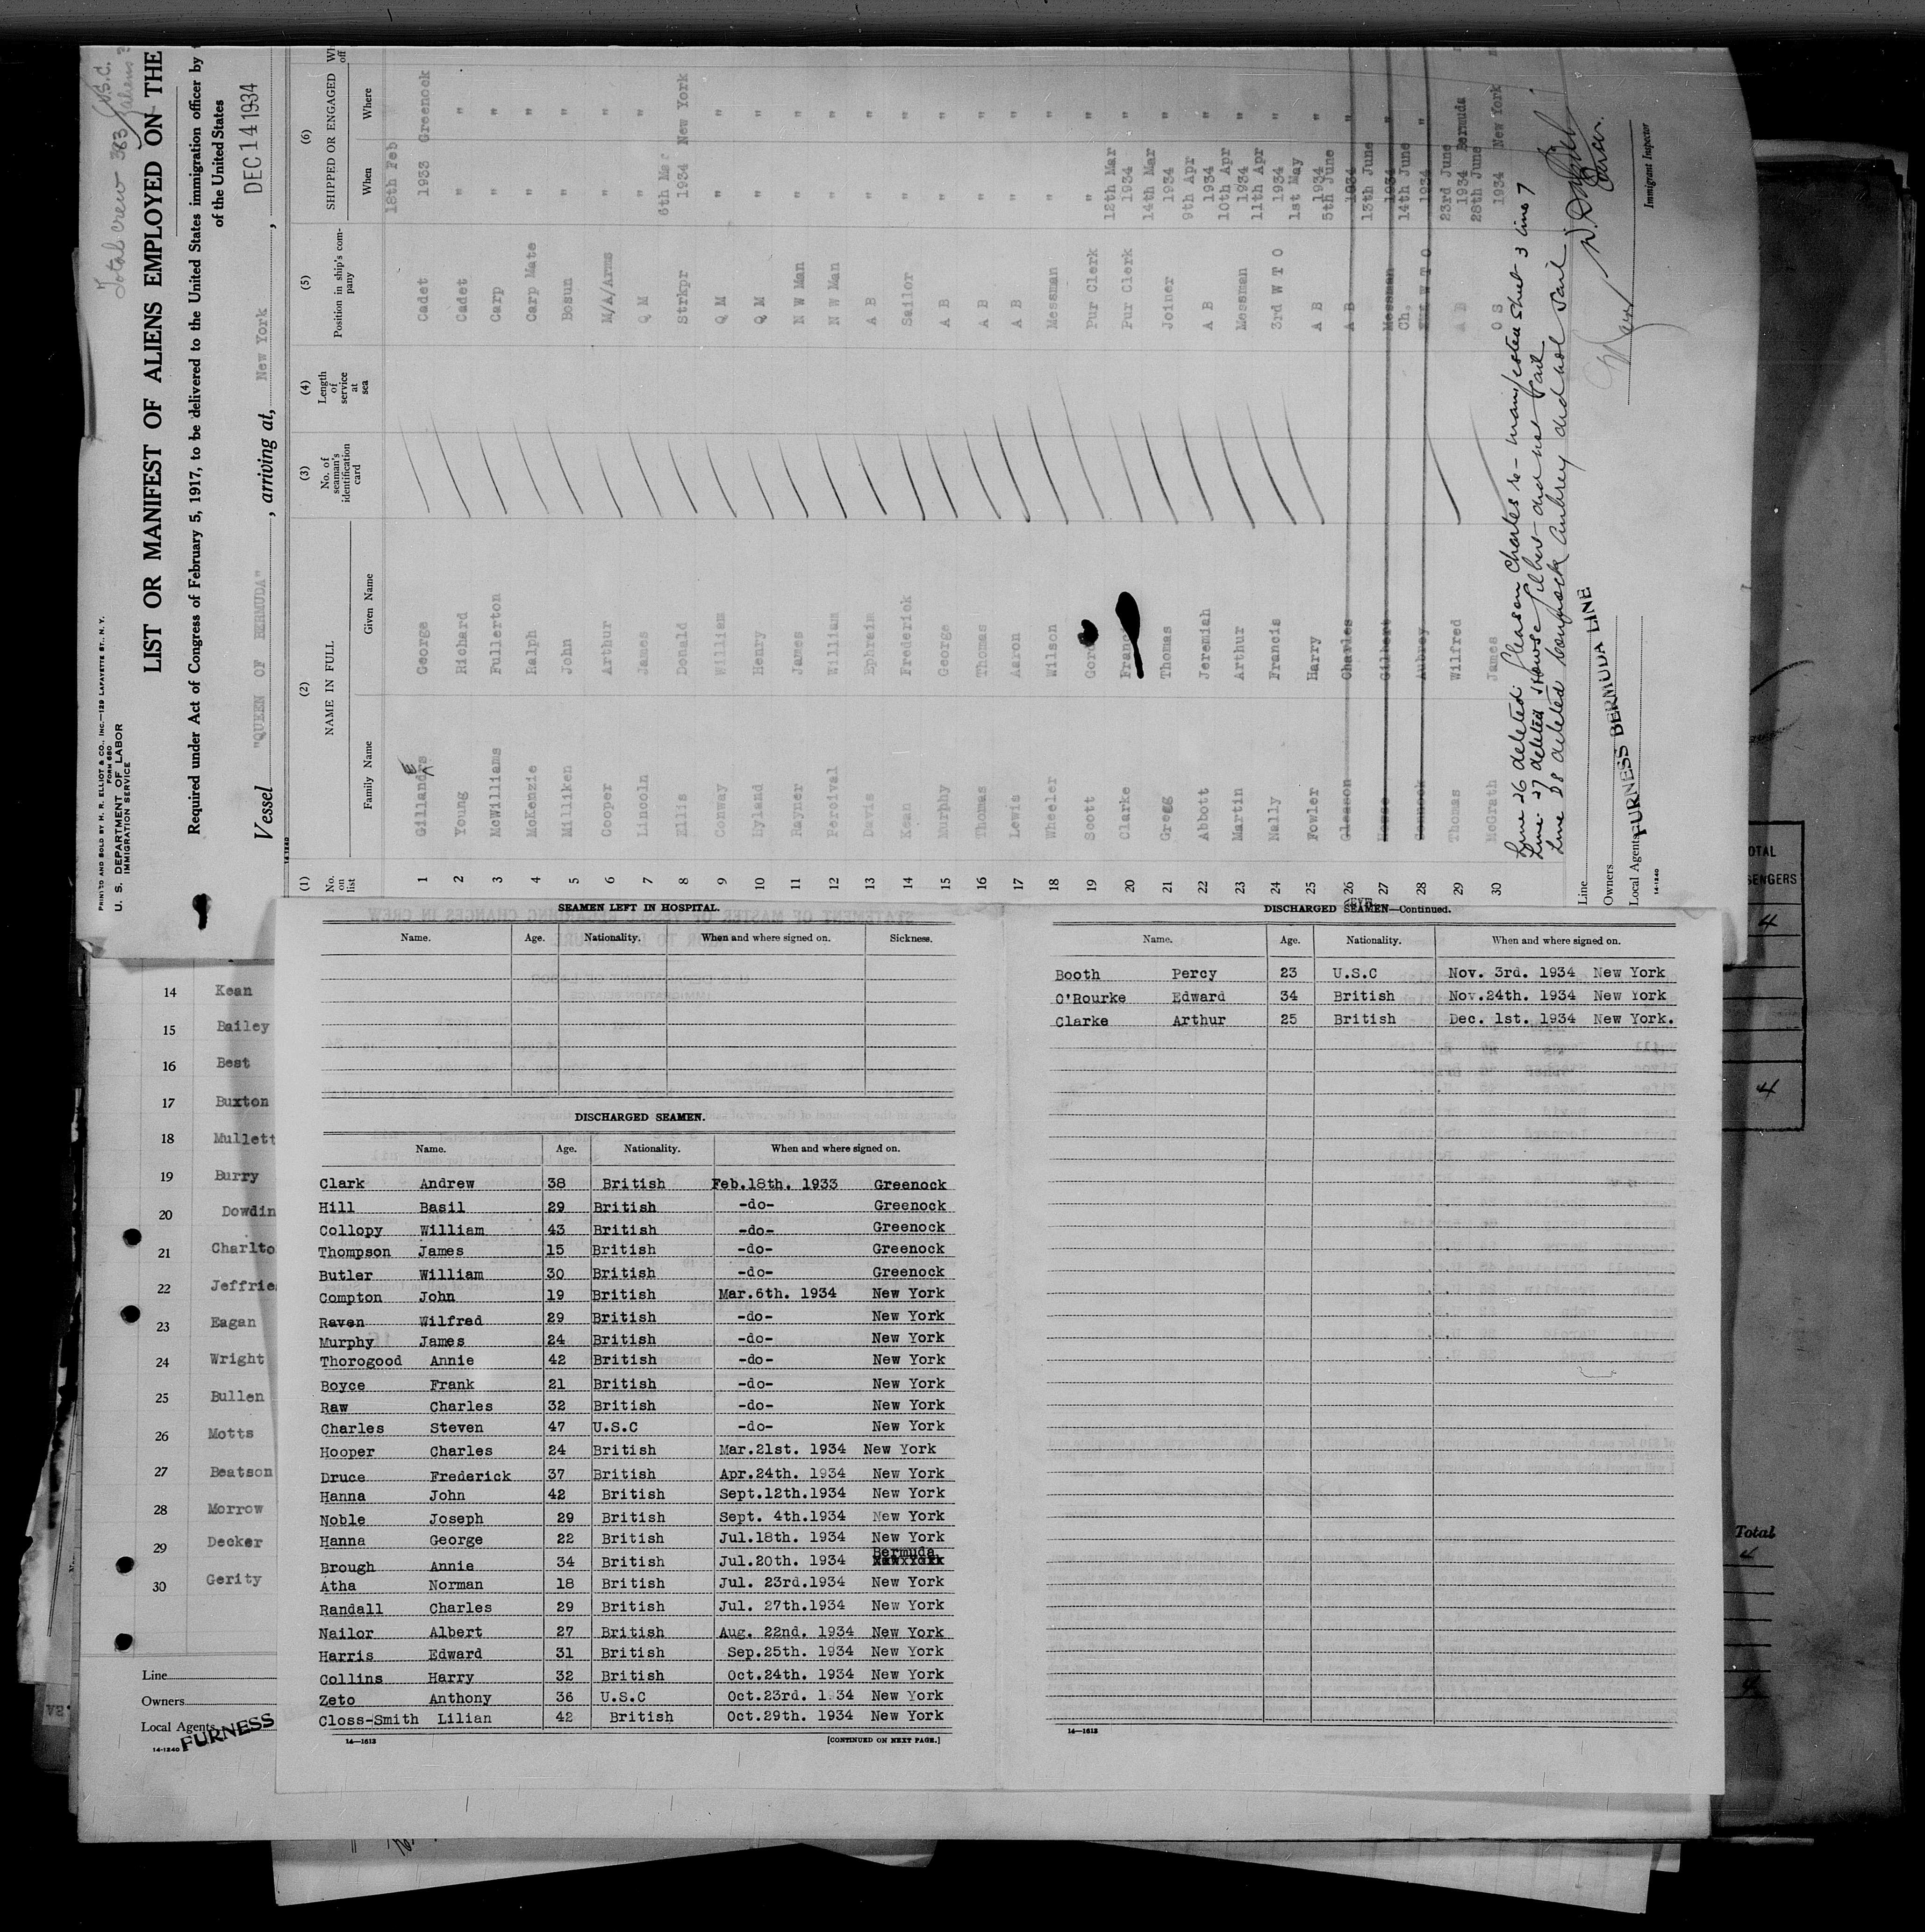 Total crew 383
PRINTED AND SOLD BY H. R. ELLIOT & CO., INC.—129 LAFAYETTE ST., N. Y.
FORM 680
U. S. DEPARTMENT OF LABOR
IMMIGRATION SERVICE
LIST OR MANIFEST OF ALIENS EMPLOYED ON THE
Required under Act of Congress of February 5, 1917, to be delivered to the United States immigration officer by
of the United States
Vessel "QUEEN OF BERMUDA", arriving at, New York, DEC 14 1934
14-1240
(1) (2) (3) (4) (5) (6)
No. on list NAME IN FULL No. of seaman's identification card Length of service at sea Position in ship's company SHIPPED OR ENGAGED
Family Name Given Name When Where
18th Feb
1 Gillanders George Cadet 1933 Greenock
2 Young Richard Cadet " "
3 McWilliams Fullerton Carp " "
4 McKenzie Ralph Carp Mate " "
5 Milliken John Bosun " "
6 Cooper Arthur M/A/Arms " "
7 Lincoln James Q M " "
6th Mar
8 Ellis Donald Strkpr 1934 New York
9 Conway William Q M " "
10 Hyland Henry Q M " "
11 Rayner James N W Man " "
12 Percival William N W Man " "
13 Davis Ephraim A B " "
14 Kean Frederick Sailor " "
15 Murphy George A B " "
16 Thomas Thomas A B " "
17 Lewis Aaron A B " "
18 Wheeler Wilson Messman " "
19 Scott Gor Pur Clerk " "
12th Mar
20 Clarke Franc Pur Clerk 1934 "
14th Mar
21 Gregg Thomas Joiner 1934 "
9th Apr
22 Abbott Jeremiah A B 1934 "
10th Apr
23 Martin Arthur Messman 1934 "
11th Apr
24 Nally Francis 3rd W T O 1934 "
1st May
25 Fowler Harry A B 1934 "
5th June
26 Gleason Charles A B 1934 "
13th June
27 Howse Gilbert Messman 1934 "
14th June
28 Aubrey Ch. W T O 1934 "
23rd June
29 Thomas Wilfred A B 1934 Bermuda
28th June
30 McGrath James O S 1934 New York
Line 26 deleted Gleason Charles re-manifested sheet 3 line 7
Line 27 deleted Howse Gilbert did not sail
Line 28 deleted Aubrey did not sail
Line
Owners
Local Agents FURNESS BERMUDA LINE
14-1240
Immigrant Inspector
14 Kean
15 Bailey
16 Best
17 Buxton
18 Mullett
19 Burry
20 Dowdin
21 Charlto
22 Jeffrie
23 Eagan
24 Wright
25 Bullen
26 Motts
27 Beatson
28 Morrow
29 Decker
30 Gerity
Line
Owners
Local Agents FURNESS
14-1240
SEAMEN LEFT IN HOSPITAL.
Name. Age. Nationality. When and where signed on. Sickness.
DISCHARGED SEAMEN.
Name. Age. Nationality. When and where signed on.
Clark Andrew 38 British Feb.18th. 1933 Greenock
Hill Basil 29 British -do- Greenock
Collopy William 43 British -do- Greenock
Thompson James 15 British -do- Greenock
Butler William 30 British -do- Greenock
Compton John 19 British Mar.6th. 1934 New York
Raven Wilfred 29 British -do- New York
Murphy James 24 British -do- New York
Thorogood Annie 42 British -do- New York
Boyce Frank 21 British -do- New York
Raw Charles 32 British -do- New York
Charles Steven 47 U.S.C -do- New York
Hooper Charles 24 British Mar.21st. 1934 New York
Druce Frederick 37 British Apr.24th. 1934 New York
Hanna John 42 British Sept.12th.1934 New York
Noble Joseph 29 British Sept. 4th.1934 New York
Hanna George 22 British Jul.18th. 1934 New York
Brough Annie 34 British Jul.20th. 1934 Bermuda
Atha Norman 18 British Jul. 23rd.1934 New York
Randall Charles 29 British Jul. 27th.1934 New York
Nailor Albert 27 British Aug. 22nd. 1934 New York
Harris Edward 31 British Sep.25th. 1934 New York
Collins Harry 32 British Oct.24th. 1934 New York
Zeto Anthony 36 U.S.C Oct.23rd. 1934 New York
Closs-Smith Lilian 42 British Oct.29th. 1934 New York
14—1613 [CONTINUED ON NEXT PAGE.]
DISCHARGED SEAMEN—Continued.
Name. Age. Nationality. When and where signed on.
Booth Percy 23 U.S.C Nov. 3rd. 1934 New York
O'Rourke Edward 34 British Nov.24th. 1934 New York
Clarke Arthur 25 British Dec. 1st. 1934 New York.
14—1613
4
4
Total
4